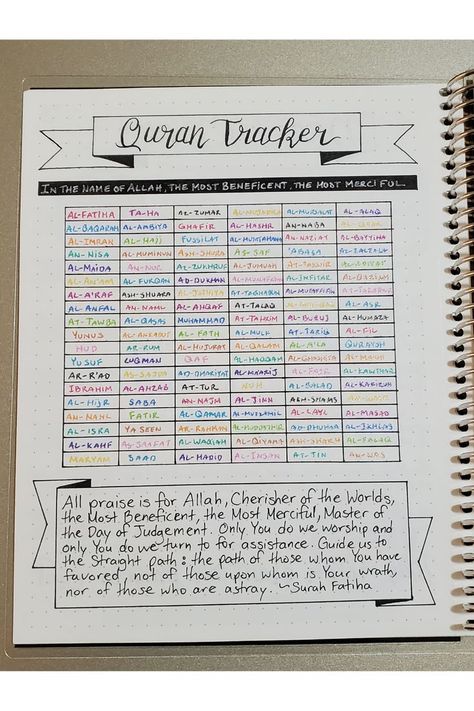 Quran Tracker
IN THE NAME OF ALLAH, THE MOST BENEFICENT, THE MOST MERCIFUL
AL-FATIHA TA-HA AL-MUJADILA AL-MURSALAT AL-ALAQ
AL-BAQARAH AL-ANBIYA GHAFIR AL-HASHR AN-NABA
AL-IMRAN AL-HAJJ FUSSILAT AL-MUMTAHANA AN-NAZIAT AL-BAYYINA
AN-NISA AL-MUMINUN ASH-SHURA AS-SAF 'ABASA AZ-ZALZALA
AL-MAIDA AN-NUR AZ-ZUKHRUF AL-JUMUAH AT-TAKWIR
AL-AN'AM AL-FURQAN AD-DUKHAN AL-MUNAFIQUN AL-INFITAR
AL-A'RAF ASH-SHUARA AL-JATHIYA AT-TAGHABUN
AL-ANFAL AN-NAML AL-AHQAF AT-TALAQ AL-ASR
AT-TAWBA AL-QASAS MUHAMMAD AT-TAHRIM AL-BURUJ AL-HUMAZA
YUNUS AL-ANKABUT AL-FATH AL-MULK AT-TARIQ AL-FIL
HUD AR-RUM AL-HUJURAT AL-QALAM AL-A'LA QURAYSH
YUSUF LUQMAN QAF AL-HAQQAH AL-GHASHIYA AL-MAUN
AR-R'AD AS-SAJDA AD-DHARIYAT AL-MAARIJ AL-FAJR AL-KAWTHAR
IBRAHIM AL-AHZAB AT-TUR NUH AL-BALAD AL-KAFIRUN
AL-HIJR SABA AN-NAJM AL-JINN ASH-SHAMS
AN-NAHL FATIR AL-QAMAR AL-MUZZAMIL AL-LAYL AL-MASAD
AL-ISRA YA SEEN AR-RAHMAN AD-DHUHA AL-IKHLAS
AL-KAHF AS-SAAFAT AL-WAQIAH AL-QIYAMA ASH-SHARH AL-FALAQ
MARYAM SAAD AL-HADID AL-INSAN AT-TIN AN-NAS
All praise is for Allah, Cherisher of the Worlds,
the Most Beneficent, the Most Merciful, Master of
the Day of Judgement. Only You do we worship and
only You do we turn to for assistance. Guide us to
the Straight path: the path of those whom You have
favored, not of those upon whom is Your wrath,
nor of those who are astray. ~Surah Fatiha